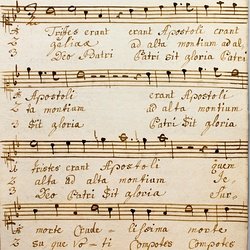 Tristes erant erant Apostoli erant
galilea ad alta montium ad al
Deo Patri Patri Sit gloria Patri
Apostoli erant Apostoli
ta montium ad alta montium
Sit gloria Patri Sit gloria
tristes erant Apostoli quem
alta ad alta montium Je
Deo Patri Sit gloria Sur
morte Crude - lissima morte
su que vo - ti Compotes Compotes